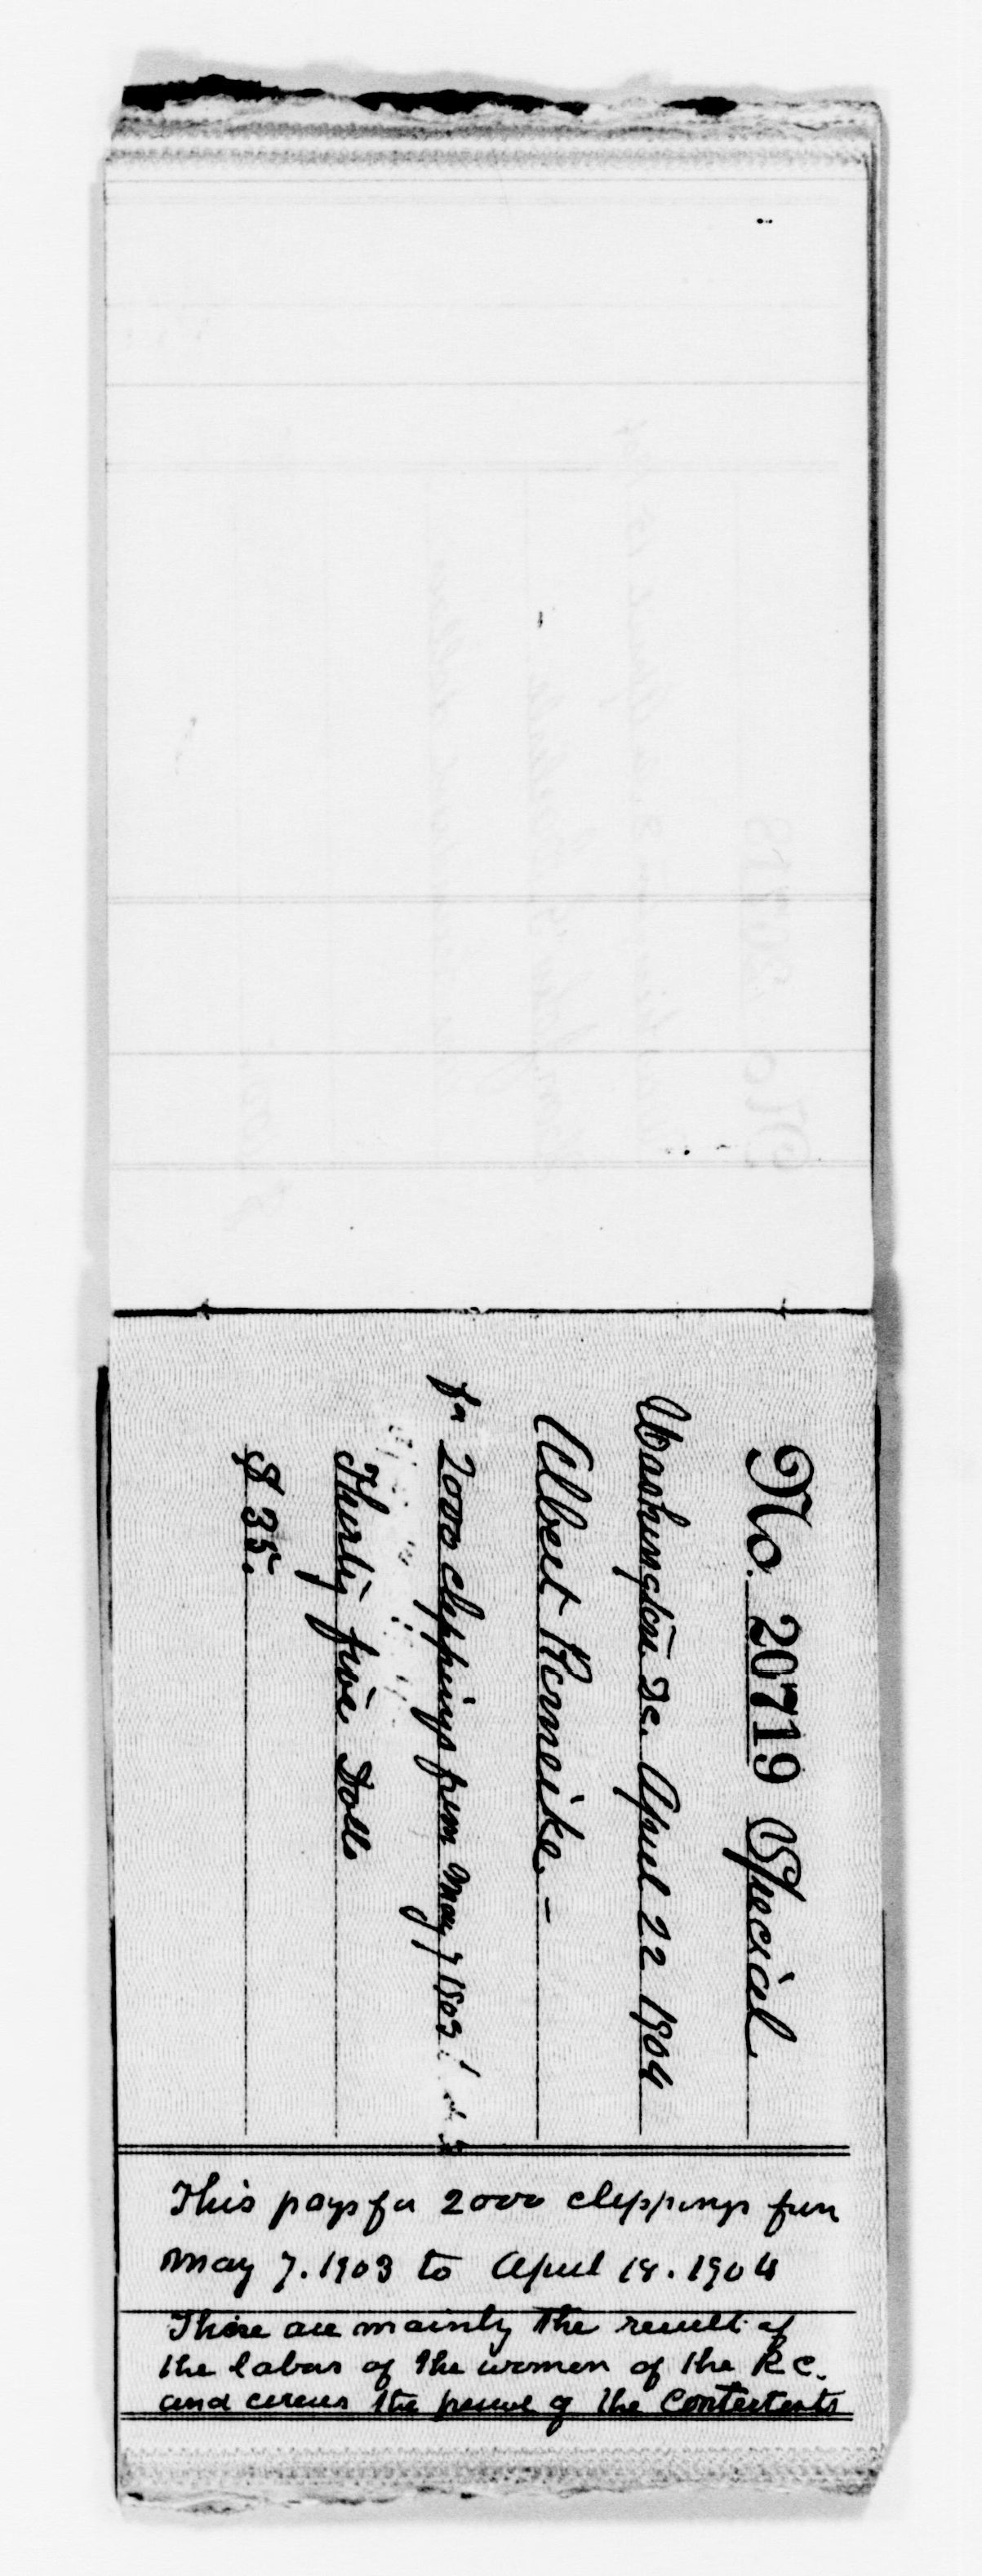 No. 20719 Special
Washington Dc. April 22 1904
Albert Romeike. –
for 2000 clippings from May 7 1903
Thirty five Dolls
$ 35.
This pays for 2000 clippings from
May 7. 1903 to April 18. 1904
These are mainly the result of
the labors of the women of the R C.
and covers the period of the Contestants